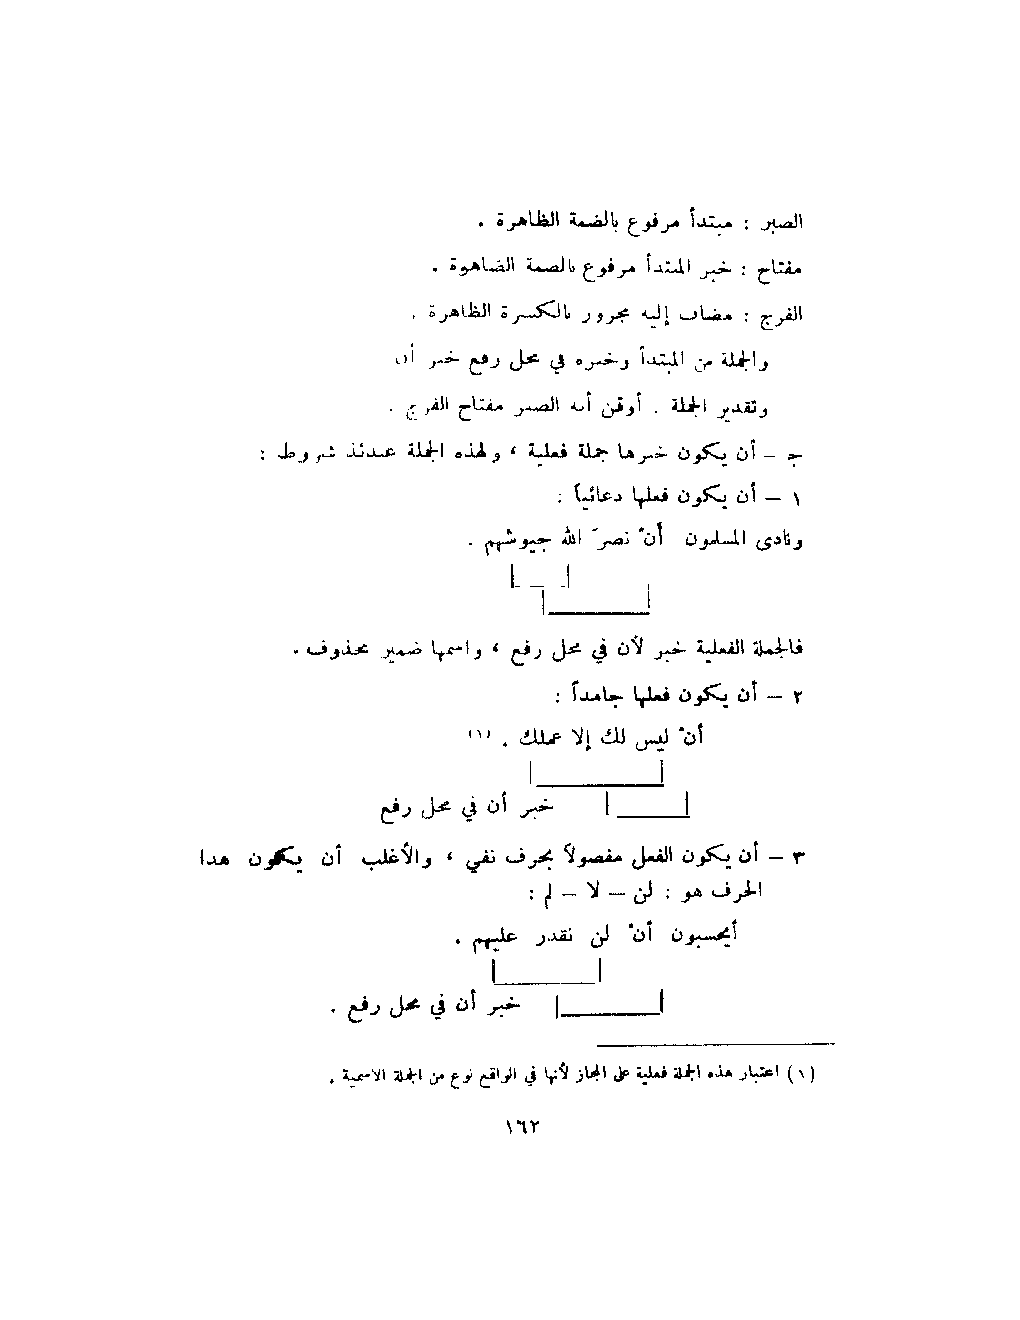 الصبر : مبتدأ مرفوع بالضمة الظاهرة .
مفتاح : خبر المبتدأ مرفوع بالصمة الضاهوة .
الفرج : مضاف إليه مجرور بالكسرة الظاهرة .
والجملة من المبتدأ وخبره في محل رفع خبر أن
وتقدير الجملة . أوقن أنه الصبر مفتاح الفرج .
جـ – أن يكون خبرها جملة فعلية ، ولهذه الجملة عندئذ شروط :
١ – أن يكون فعلها دعائياً :
ونادى المسلمون أنْ نصرَ الله جيوشهم .
فالجملة الفعلية خبر لأن في محل رفع ، واسمها ضمير محذوف .
٢ – أن يكون فعلها جامداً :
أنْ ليس لك إلا عملك . (١)
خبر أن في محل رفع
٣ – أن يكون الفعل مفصولاً بحرف نفي ، والأغلب أن يكون هدا
الحرف هو : لن – لا – لم :
أيحسبون أنْ لن نقدر عليهم .
خبر أن في محل رفع .
(١) اعتبار هذه الجملة فعلية على المجاز لأنها في الواقع نوع من الجملة الاسمية .
١٦٢